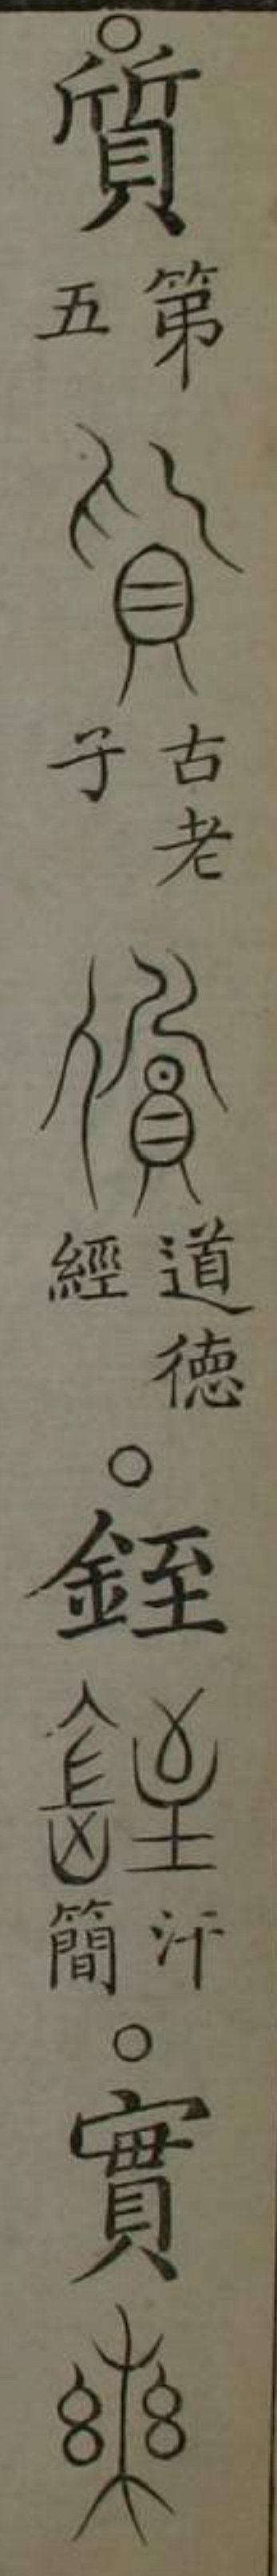 ○質第五古老子道德經○銍汗簡○實